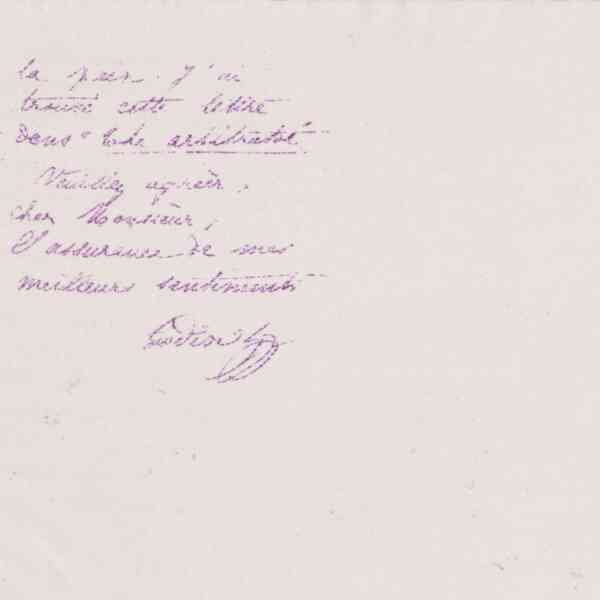 la paix. J'ai
trouvé cette lettre
Dans "the arbitrator"
Veuillez agréer,
cher Monsieur,
l'assurance de mes
meilleurs sentiments
Godin